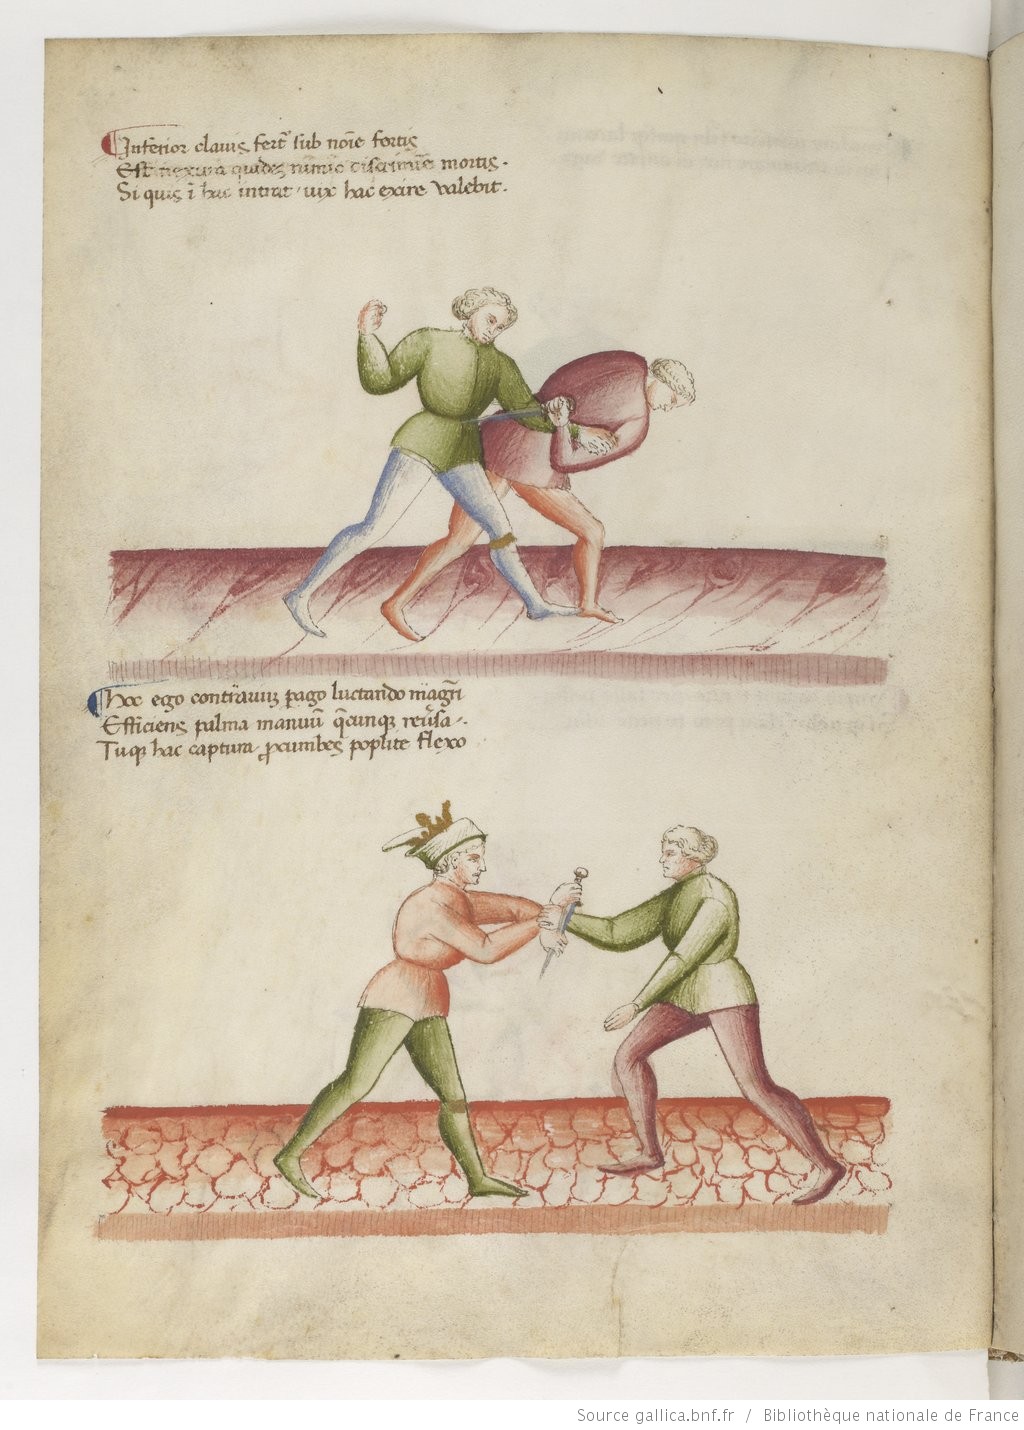 Inferior clauis fert̃ sub noĩe fortis
Est nexura quidez nimio discrimĩe mortis.
Si quis ĩ hac intrat / uix hac exire valebit.
Hoc ego contrariuz pago luctando magrĩ
Efficiens palma manuũ q̃cunqz reũsa.
Tuqz hac captura procumbes poplite flexo
Source gallica.bnf.fr / Bibliothèque nationale de France